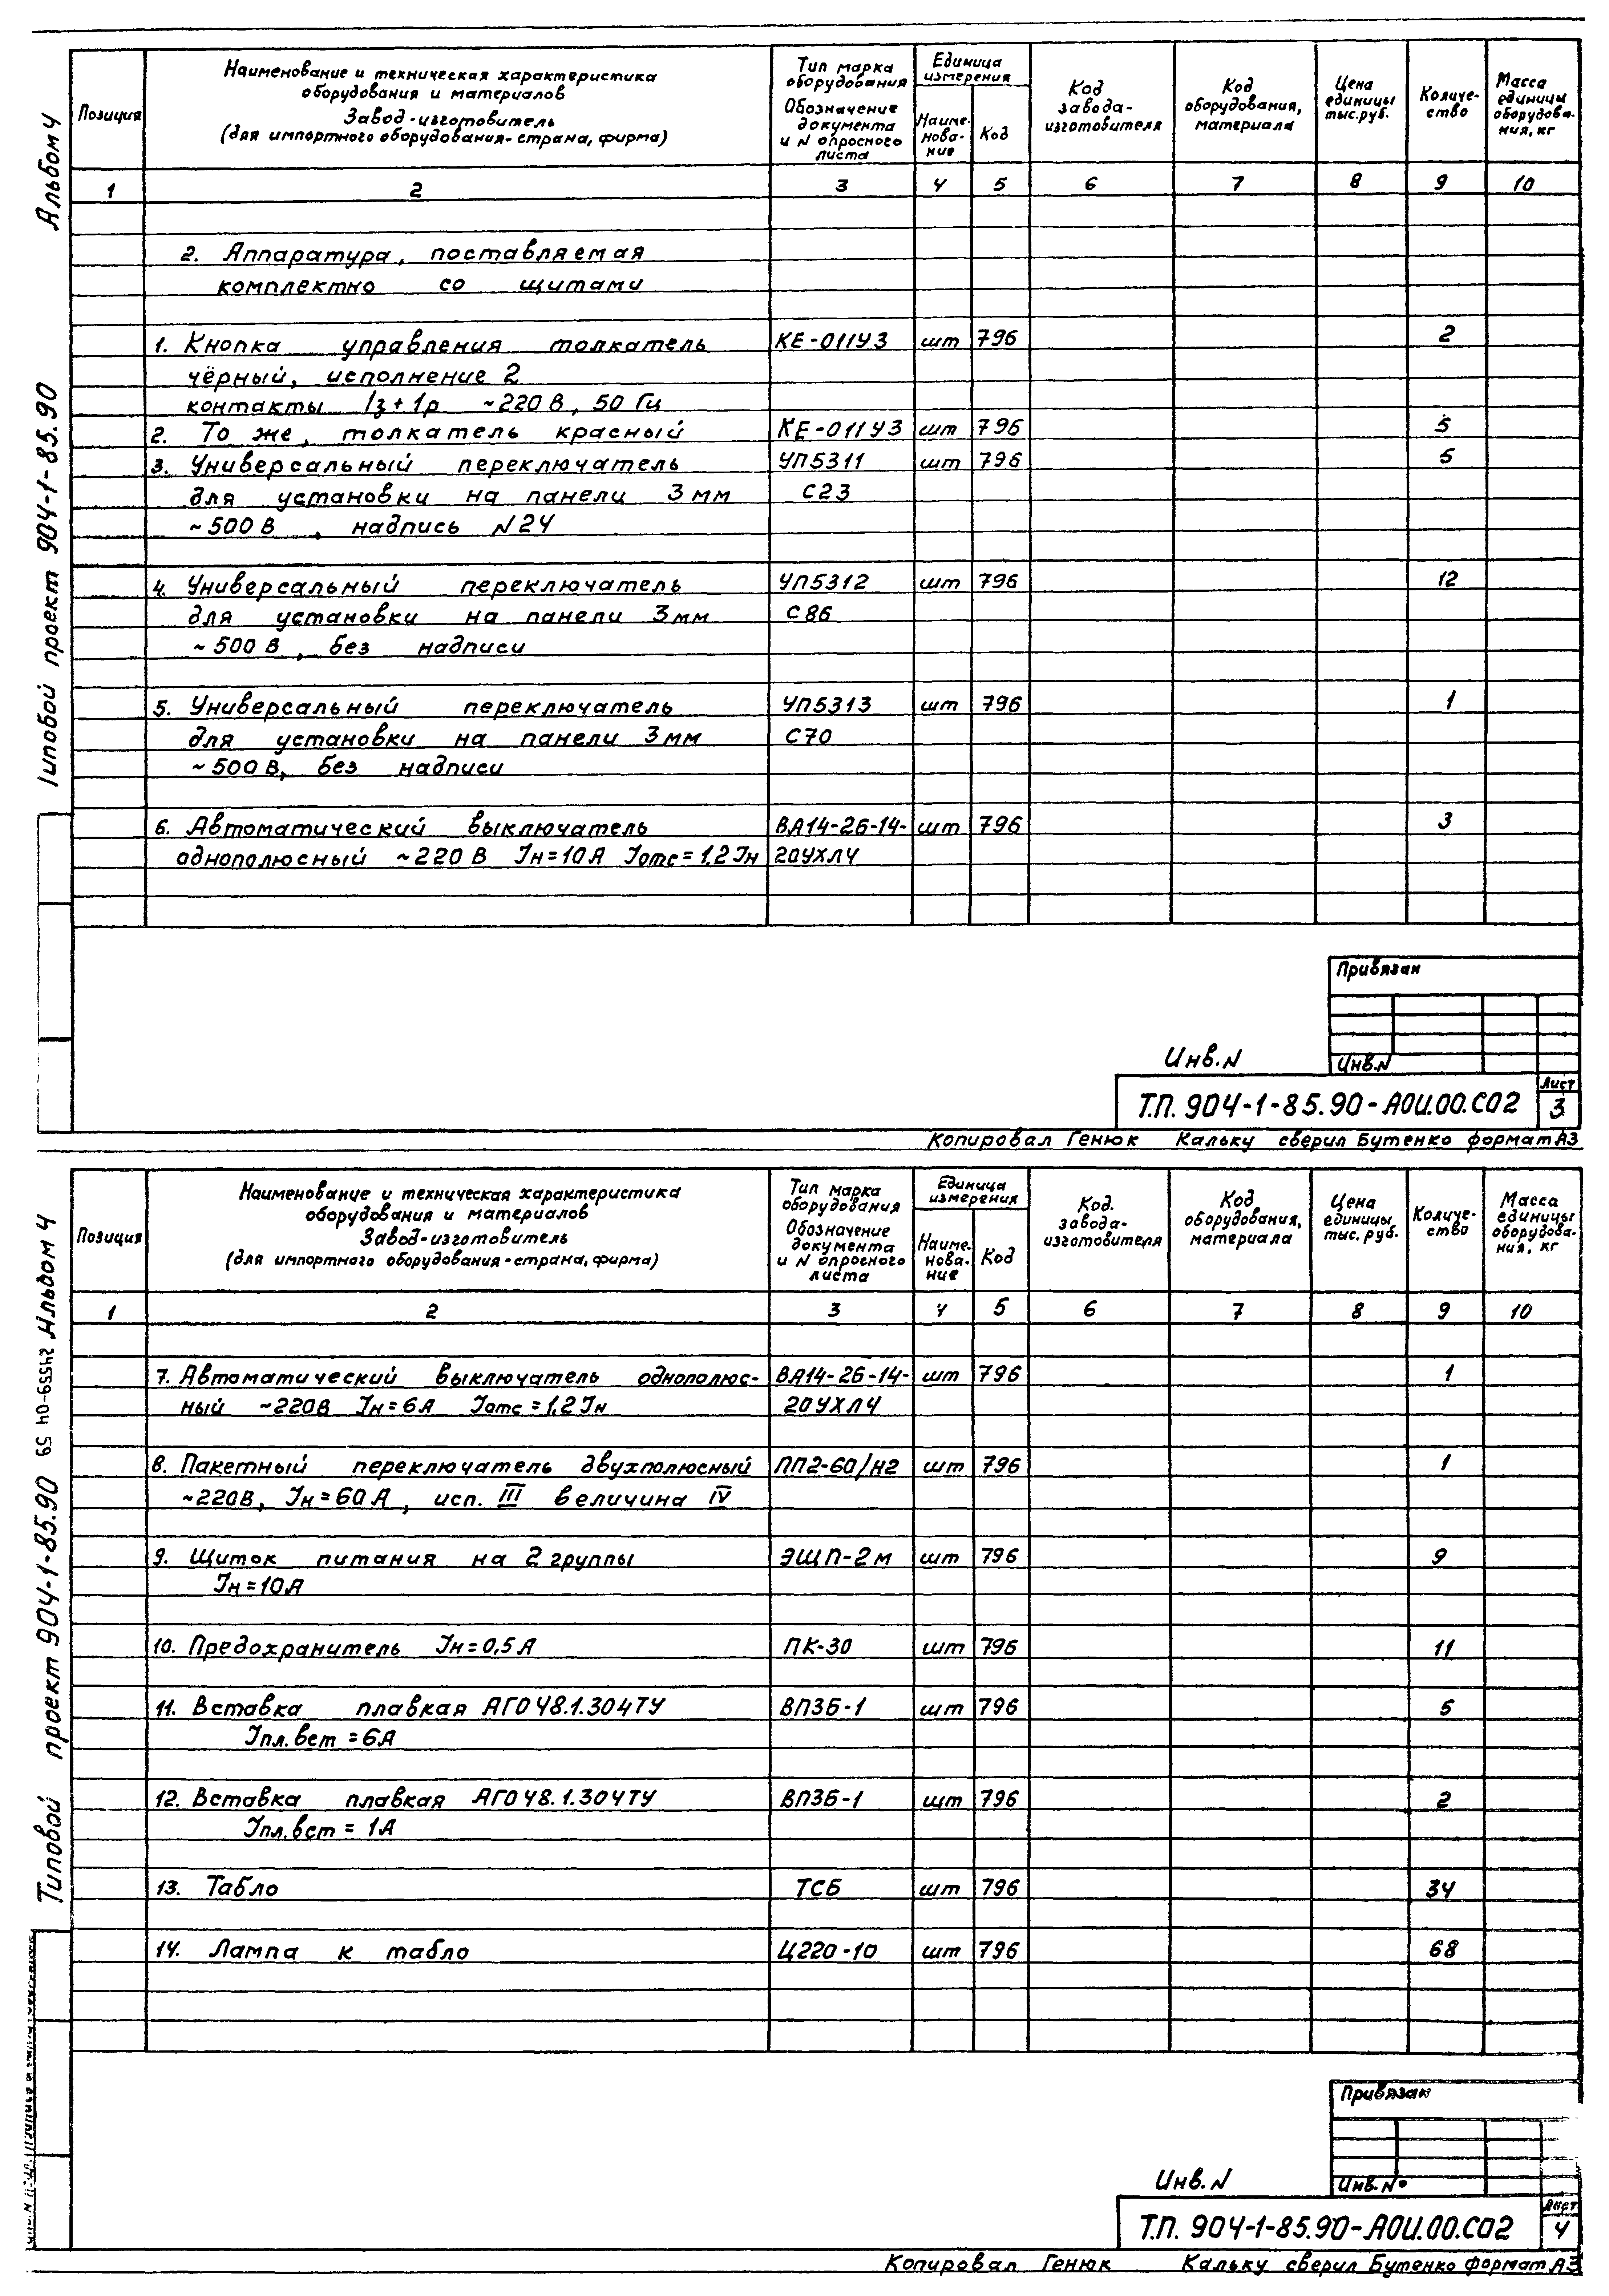 Альбом 4
Типовой проект 904-1-85.90
Позиция
Наименование и техническая характеристика
оборудования и материалов
Завод-изготовитель
(для импортного оборудования-страна, фирма)
Тип марка
оборудования
Обозначение
документа
и N опросного
листа
Единица
измерения
Наиме-
нова-
ние
Код
Код
завода-
изготовителя
Код
оборудования,
материала
Цена
единицы
тыс.руб.
Количе-
ство
Масса
единицы
оборудова-
ния, кг
1 2 3 4 5 6 7 8 9 10
2. Аппаратура, поставляемая
комплектно со щитами
1. Кнопка управления толкатель КЕ-011У3 шт 796 2
чёрный, исполнение 2
контакты 1з+1р ~220 В, 50 Гц
2. То же, толкатель красный КЕ-011У3 шт 796 5
3. Универсальный переключатель УП5311 шт 796 5
для установки на панели 3 мм С23
~500 В, надпись N24
4. Универсальный переключатель УП5312 шт 796 12
для установки на панели 3 мм С86
~500 В, без надписи
5. Универсальный переключатель УП5313 шт 796 1
для установки на панели 3 мм С70
~500 В, без надписи
6. Автоматический выключатель ВА14-26-14- шт 796 3
однополюсный ~220 В Iн=10А Iотс=1.2Iн 20УХЛ4
Привязан
Инв.N
Инв.N
Т.П. 904-1-85.90-АОИ.00.СО2
Лист
3
Копировал Генюк Кальку сверил Бутенко формат А3
Альбом 4
24559-04 59
Типовой проект 904-1-85.90
Позиция
Наименование и техническая характеристика
оборудования и материалов
Завод-изготовитель
(для импортного оборудования-страна, фирма)
Тип марка
оборудования
Обозначение
документа
и N опросного
листа
Единица
измерения
Наиме-
нова-
ние
Код
Код.
завода-
изготовителя
Код
оборудования,
материала
Цена
единицы
тыс. руб.
Количе-
ство
Масса
единицы
оборудова-
ния, кг
1 2 3 4 5 6 7 8 9 10
7. Автоматический выключатель однополюс- ВА14-26-14- шт 796 1
ный ~220В Iн=6А Iотс=1.2Iн 20УХЛ4
8. Пакетный переключатель двухполюсный ПП2-60/Н2 шт 796 1
~220В, Iн=60А, исп. III величина IV
9. Щиток питания на 2 группы ЭЩП-2м шт 796 9
Iн=10А
10. Предохранитель Iн=0,5А ПК-30 шт 796 11
11. Вставка плавкая АГО 48.1.304ТУ ВП3Б-1 шт 796 5
Iпл.вст =6А
12. Вставка плавкая АГО 48.1.304ТУ ВП3Б-1 шт 796 2
Iпл.вст = 1А
13. Табло ТСБ шт 796 34
14. Лампа к табло Ц220-10 шт 796 68
Привязан
Инв.N
Инв.№
Т.П. 904-1-85.90-АОИ.00.СО2
Лист
4
Копировал Генюк Кальку сверил Бутенко формат А3